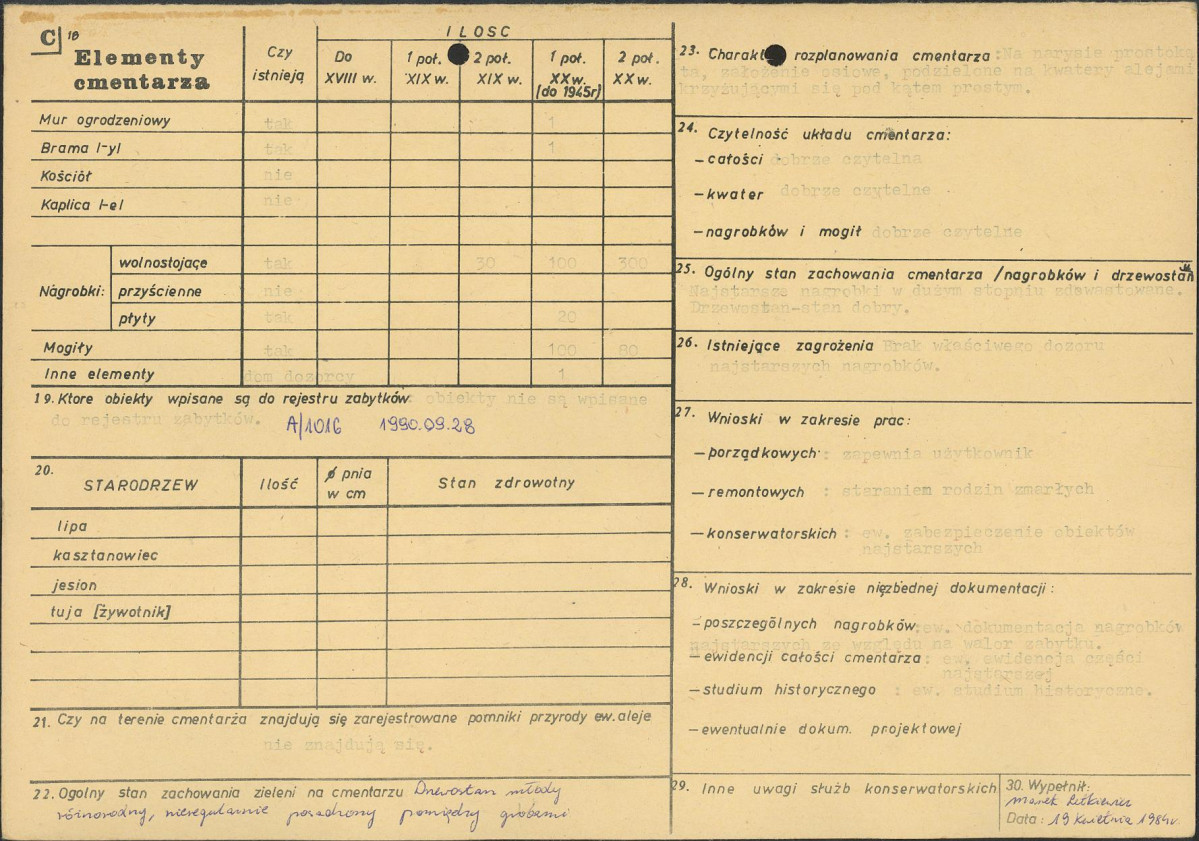 C 18
Elementy cmentarza
Czy istnieją
ILOSC
Do XVIII w.
1 poł. XIX w.
2 poł. XIX w.
1 poł. XX w. [do 1945r]
2 poł. XX w.
Mur ogrodzeniowy tak 1
Brama /-y/ tak 1
Kościół nie
Kaplica /-e/ nie
Nagrobki:
wolnostojące tak 30 100 300
przyścienne nie
płyty tak 20
Mogiły tak 100 80
Inne elementy dom dozorcy 1
19. Ktore obiekty wpisane są do rejestru zabytków : obiekty nie są wpisane
do rejestru zabytków. A/1016 1990.09.28
20.
STARODRZEW Ilość ø pnia w cm Stan zdrowotny
lipa
kasztanowiec
jesion
tuja [żywotnik]
21. Czy na terenie cmentarża znajdują się zarejestrowane pomniki przyrody ew. aleje
nie znajdują się.
22. Ogolny stan zachowania zieleni na cmentarzu Drzewostan młody
różnorodny, nieregularnie posadzony pomiędzy grobami
23. Charakt rozplanowania cmentarza : Na narysie prostoką
ta, założenie osiowe, podzielone na kwatery alejami
krzyżującymi się pod kątem prostym.
24. Czytelność układu cmentarza:
– całości dobrze czytelna
– kwater dobrze czytelne
– nagrobków i mogił dobrze czytelne
25. Ogólny stan zachowania cmentarza /nagrobków i drzewostan
Najstarsze nagrobki w dużym stopniu zdewastowane.
Drzewostan-stan dobry.
26. Istniejące zagrożenia Brak właściwego dozoru
najstarszych nagrobków.
27. Wnioski w zakresie prac:
– porządkowych : zapewnia użytkownik
– remontowych : staraniem rodzin zmarłych
– konserwatorskich : ew. zabezpieczenie obiektów
najstarszych
28. Wnioski w zakresie niezbędnej dokumentacji :
– poszczególnych nagrobków :ew. dokumentacja nagrobków
najstarszych ze względu na walor zabytku.
– ewidencji całości cmentarza : ew. ewidencja części
najstarszej
– studium historycznego : ew. studium historyczne.
– ewentualnie dokum. projektowej
29. Inne uwagi służb konserwatorskich
30. Wypełnił:
Marek
Data : 19 kwietnia 1984r.